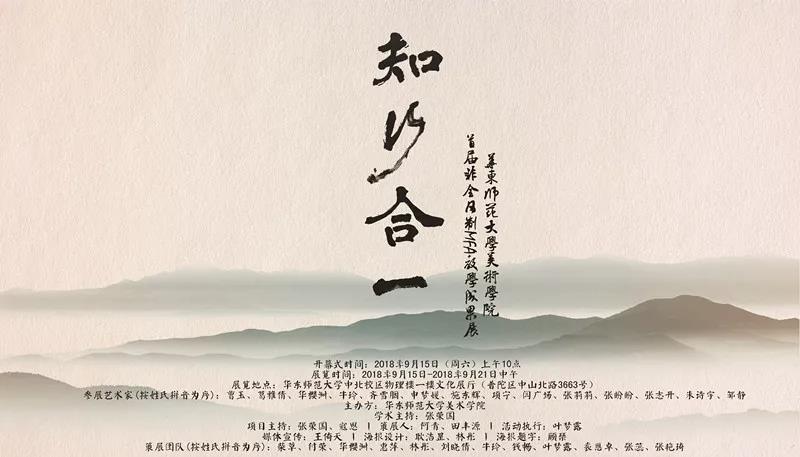 知行合一
華東师范大學美術學院
首届非全日制MFA教學成果展
开幕式时间：2018年9月15日（周六）上午10点
展览时间：2018年9月15日-2018年9月21日中午
展览地点：华东师范大学中北校区物理楼一楼文化展厅（普陀区中山北路3663号）
参展艺术家(按姓氏拼音为序)：曹玉、葛雅情、华樱洲、牛玲、齐雪胭、申梦媛、施东辉、项宇、闫广场、张莉莉、张盼盼、张志开、朱诗宇、邹静
主办方：华东师范大学美术学院
学术主持：张荣国
项目主持：张荣国、寇恩 | 策展人：阿青、田丰源 | 活动执行：叶梦露
媒体宣传：王倚天 | 海报设计：耿洁昱、林彤 | 海报题字：顾琹
策展团队(按姓氏拼音为序)：柴草、付荣、华樱洲、惠萍、林彤、刘晓倩、牛玲、钱畅、叶梦露、袁思卓、张蕊、张艳琦